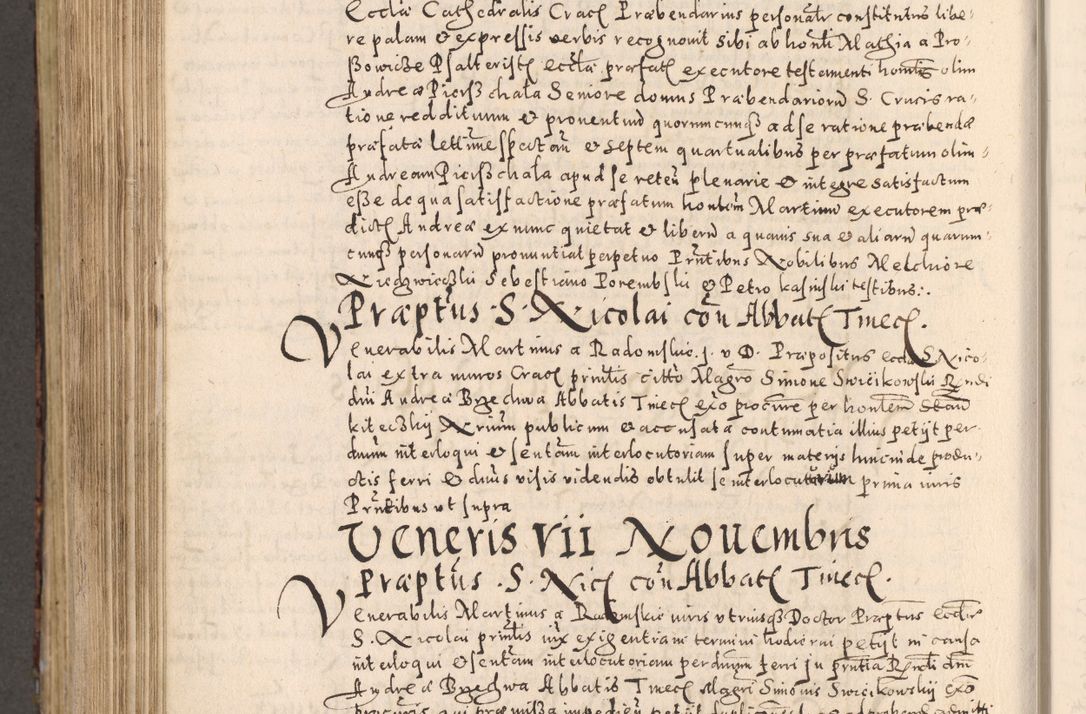 Eccliæ Cathedralis Crac Præbendarius personalr constitutus libe-
re palam & expressis verbis recognouit sibi ab honli Mathia a Pro-
ßowicze Psalterist eccliæ præfat executore testamenti honlis olim
Andreæ Pierzchala Seniore domus Præbendariorū S. Crucis ra-
tione reddituum & prouentuū quorumcunqʒ ad se ratione præbendæ
præfatæ lettime spectan & septem quartualibus per præfatum olim
Andream Pierzchala apud se reten plenarie & integre satisfactum
eße de qua satisfactione præfatum honlem Martinū executorem præ-
dict Andreæ ex nunc quietat & liberū a quauis sua & aliarū quarum-
cunqʒ personarū pronuntiat perpetuo Prntibus Nobilibus Melchiore
Niedzwieczki Sebestiano Porembski & Petro Kasinski testibus:.
Præptus S. Nicolai con Abbat Tinec.
Venerabilis Martinus a Radomskie J. v D. Præpositus eccliæ S Nico-
lai extra muros Crac printis citto Magro Simone Swiecikowski Rndi
dni Andreæ Brzechwa Abbatis Tinec exo procure per honlem Stan
kiteczkij Nrium publicum & accusata contumatia illius petijt per
dnum interloqui & sentam interlocutoriam super materijs hincinde produ-
ctis ferri & dnus visis videndis obtulit se interlocuturum prima iuris
Prntibus ut supra
Veneris VII Nouembris
Præptus . S. Nic con Abbat Tinec.
Venerabilis Martinus a Radomskie iuris vtriusqʒ Doctor Præptus ecclie
S. Nicolai printis iux exigentiam termini hodierni petijt in causa
interloqui & sentam interlocutoriam per dnum ferri in prntia Rndi dni
Andreæ Brzechwa Abbatis Tinec Magri Simonis Swiecikowskij exo
procuris qui præmissa impedien petijt